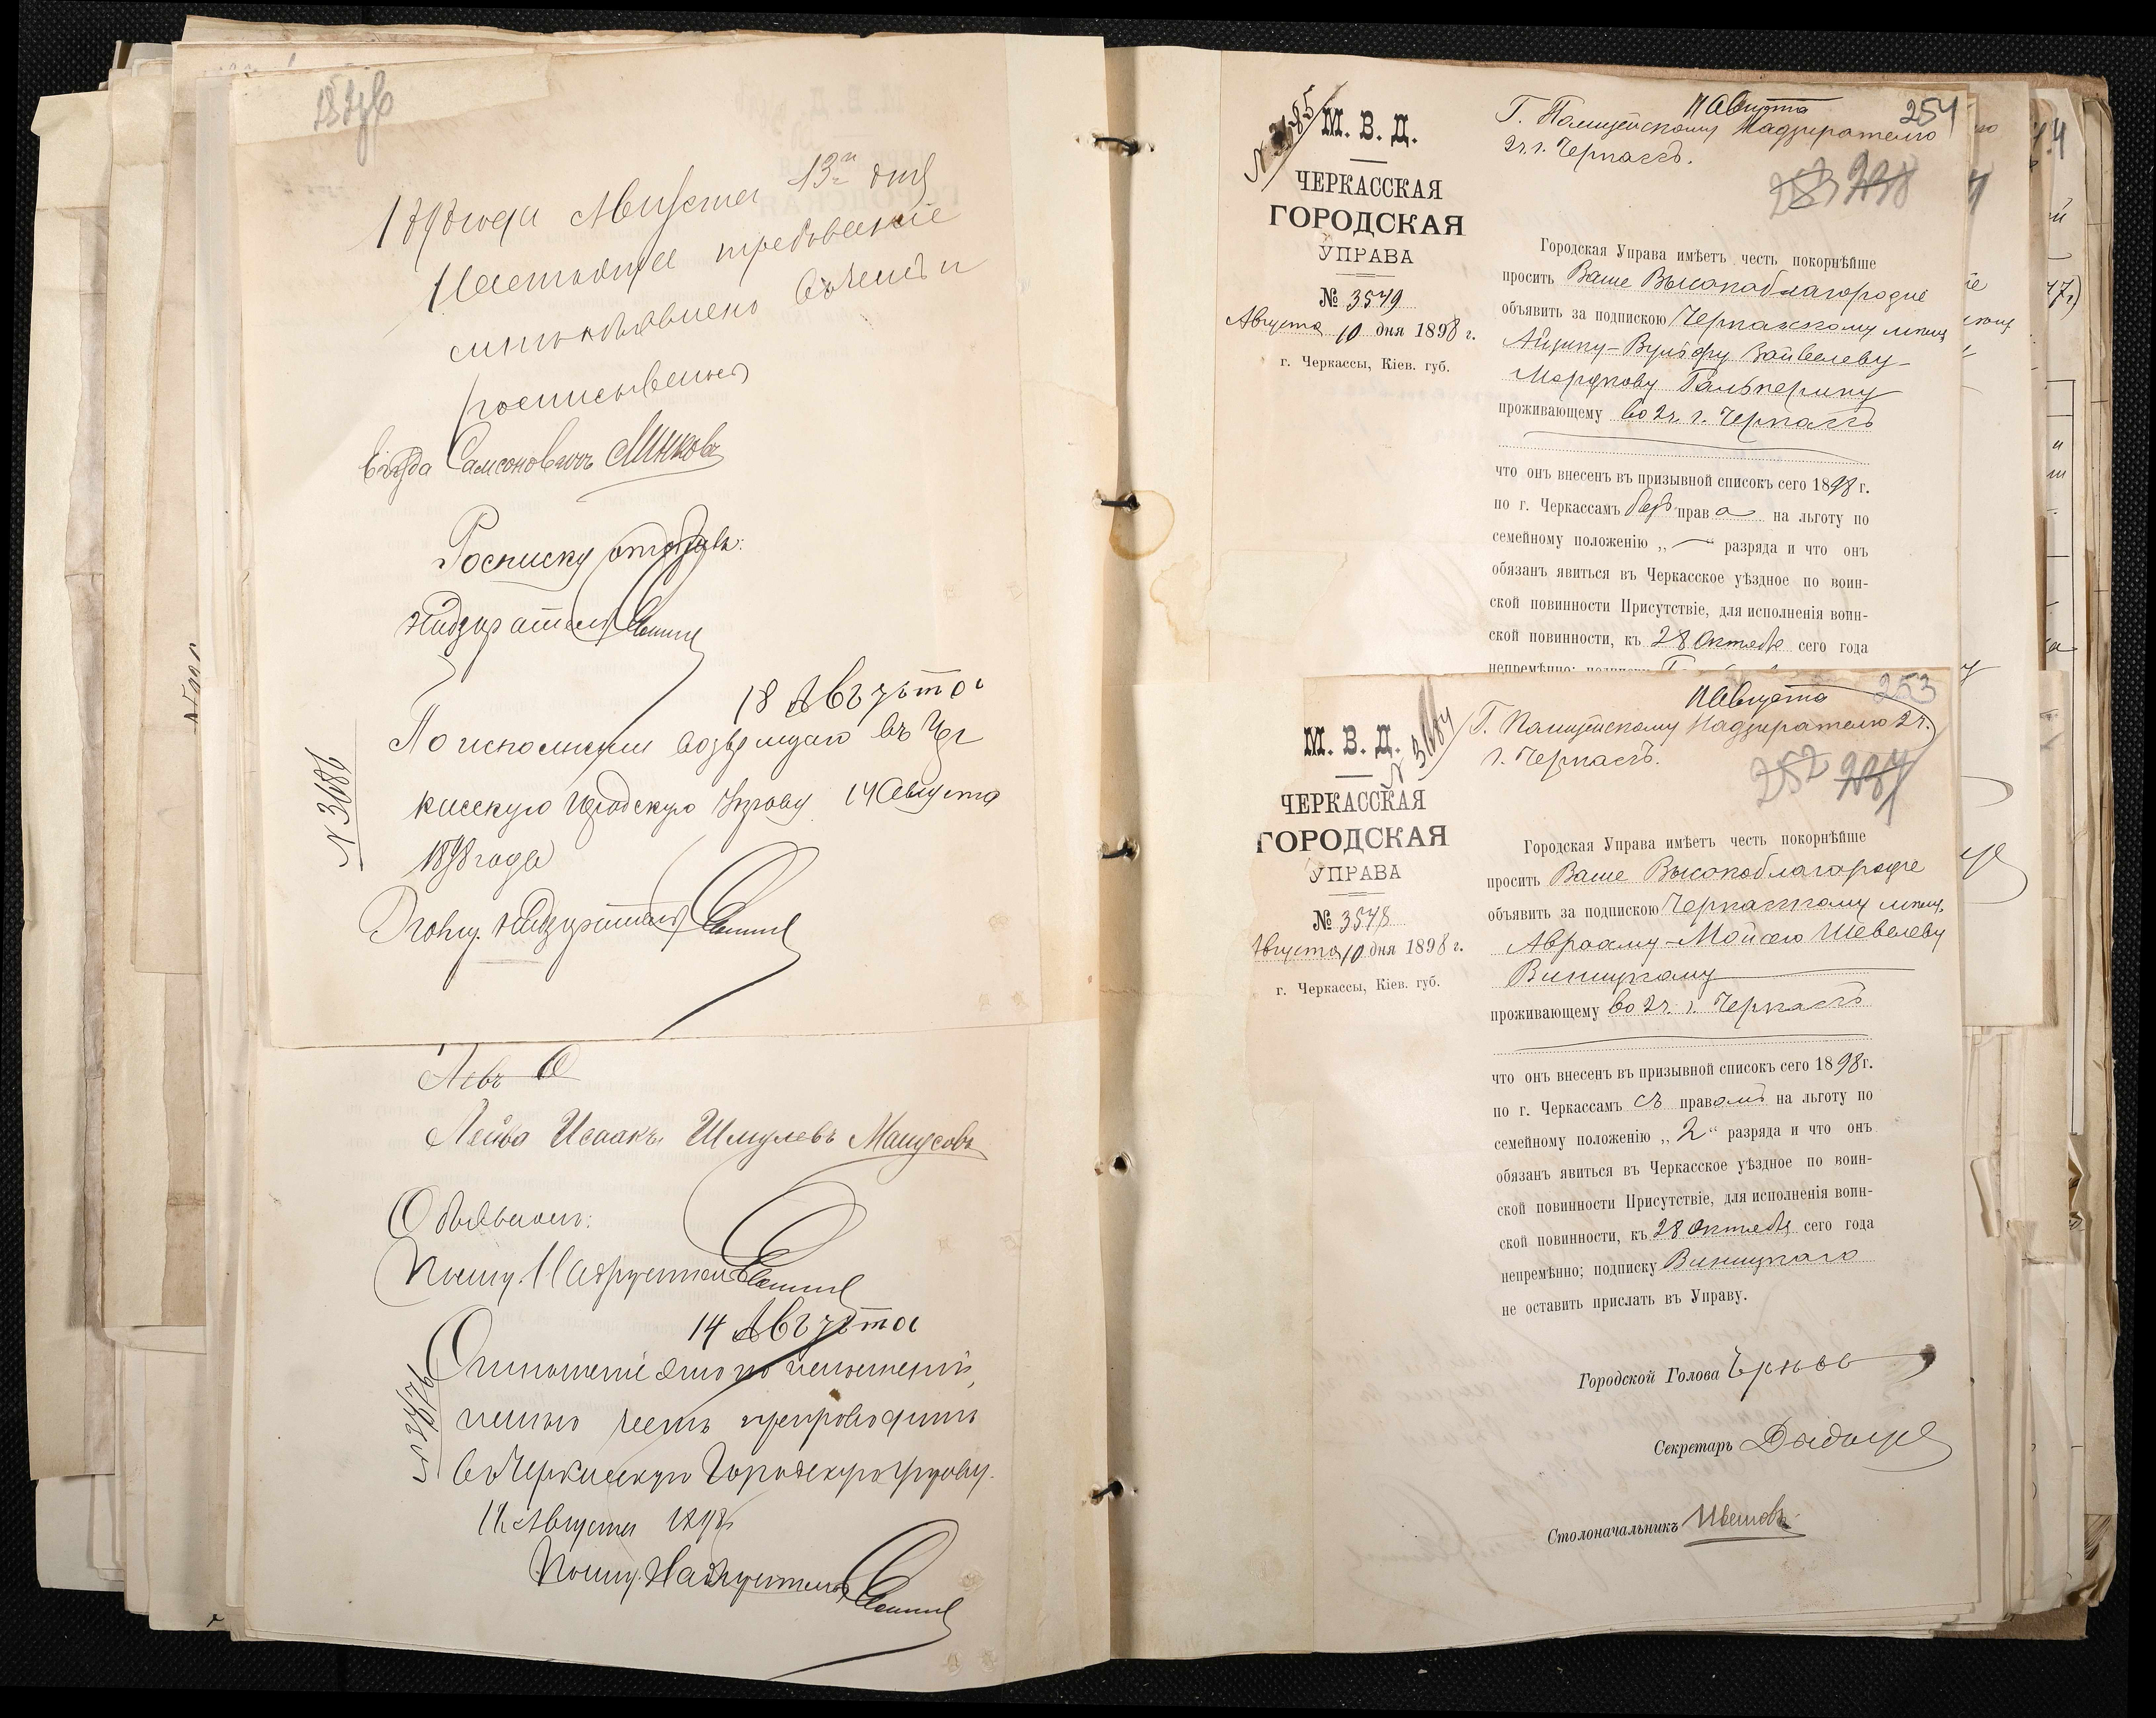 1898 года Августа 13го дня
Настоящее требованіе
мнѣ объявлено въ чемъ и
росписываюсь
Самсоновичъ Минковъ
Росписку отобралъ:
Надзиратель
18 Августа
По исполненіи возвращаю въ Чер
касскую Городскую Управу 14 Августа
1898 года
№ 3686
Полиц. Надзиратель
Лейба Исаакъ Шмулевъ Манусовъ
Объявилъ:
Полиц. Надзиратель
14 Августа
Отношеніе это по исполненіи,
имѣю честь препроводить
въ Черкасскую Городскую Управу.
11 Августа 1898
№ 3676
Полиц. Надзиратель
254
№ 3685
М. В. Д.
ЧЕРКАССКАЯ
ГОРОДСКАЯ
УПРАВА
№ 3549
Августа 10 дня 1898 г.
г. Черкассы, Кіев. губ.
11 Августа
Г. Полицейскому Надзирателю
2 ч. г. Черкассъ.
253 238
Городская Управа имѣетъ честь покорнѣйше
просить Ваше Высокоблагородіе
объявить за подпискою Черкасскому мѣщ.
Айзику-Вульфу Зайвелеву-
Мордкову Гальперину
проживающему во 2 ч. г. Черкассъ
что онъ внесенъ въ призывной списокъ сего 1898 г.
по г. Черкассамъ безъ права на льготу по
семейному положенію „—“ разряда и что онъ
обязанъ явиться въ Черкасское уѣздное по воин-
ской повинности Присутствіе, для исполненія воин-
ской повинности, къ 28 Октября сего года
непремѣнно; подписку
253
№ 3684
М. В. Д.
ЧЕРКАССКАЯ
ГОРОДСКАЯ
УПРАВА
№ 3548
Августа 10 дня 1898 г.
г. Черкассы, Кіев. губ.
11 Августа
Г. Полицейскому Надзирателю 2 ч.
г. Черкассъ.
252 237
Городская Управа имѣетъ честь покорнѣйше
просить Ваше Высокоблагородіе
объявить за подпискою Черкасскому мѣщ.
Аврааму-Мойсею Шевелеву
Виницкому
проживающему во 2 ч. г. Черкассъ
что онъ внесенъ въ призывной списокъ сего 1898 г.
по г. Черкассамъ съ правомъ на льготу по
семейному положенію „2“ разряда и что онъ
обязанъ явиться въ Черкасское уѣздное по воин-
ской повинности Присутствіе, для исполненія воин-
ской повинности, къ 28 Октября сего года
непремѣнно; подписку Виницкаго
не оставить прислать въ Управу.
Городской Голова
Секретарь
Столоначальникъ